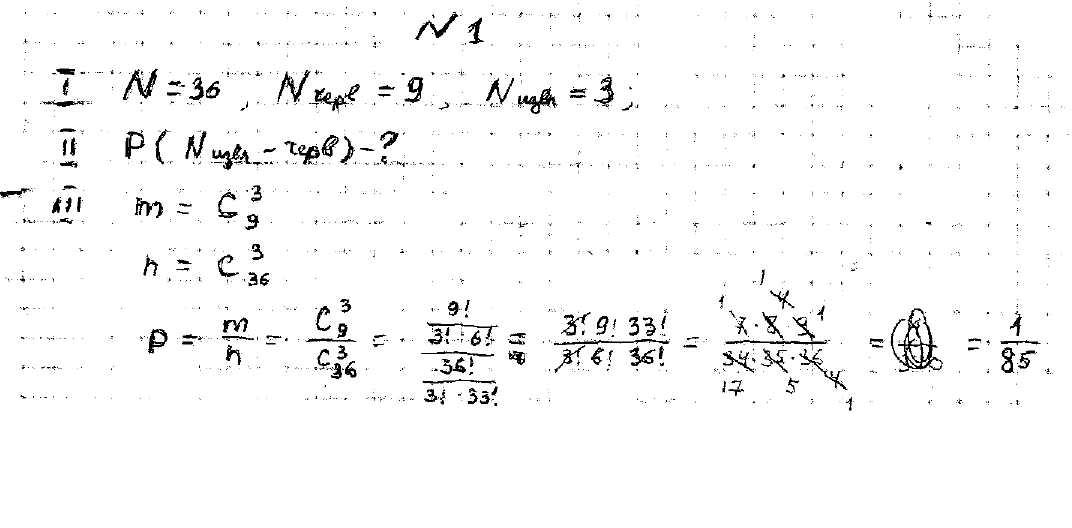 N 1
I N = 36, N черв = 9, N извл = 3;
II P(N извл - черв) - ?
III m = C_9^3
n = C_36^3
P = m/n = C_9^3/C_36^3 = (9!/(3! · 6!))/(36!/(3! · 33!)) = (3! 9! 33!)/(3! 6! 36!) = (7 · 8 · 9)/(34 · 35 · 36) = = 1/85
1 1 4 1
17 5 4 1